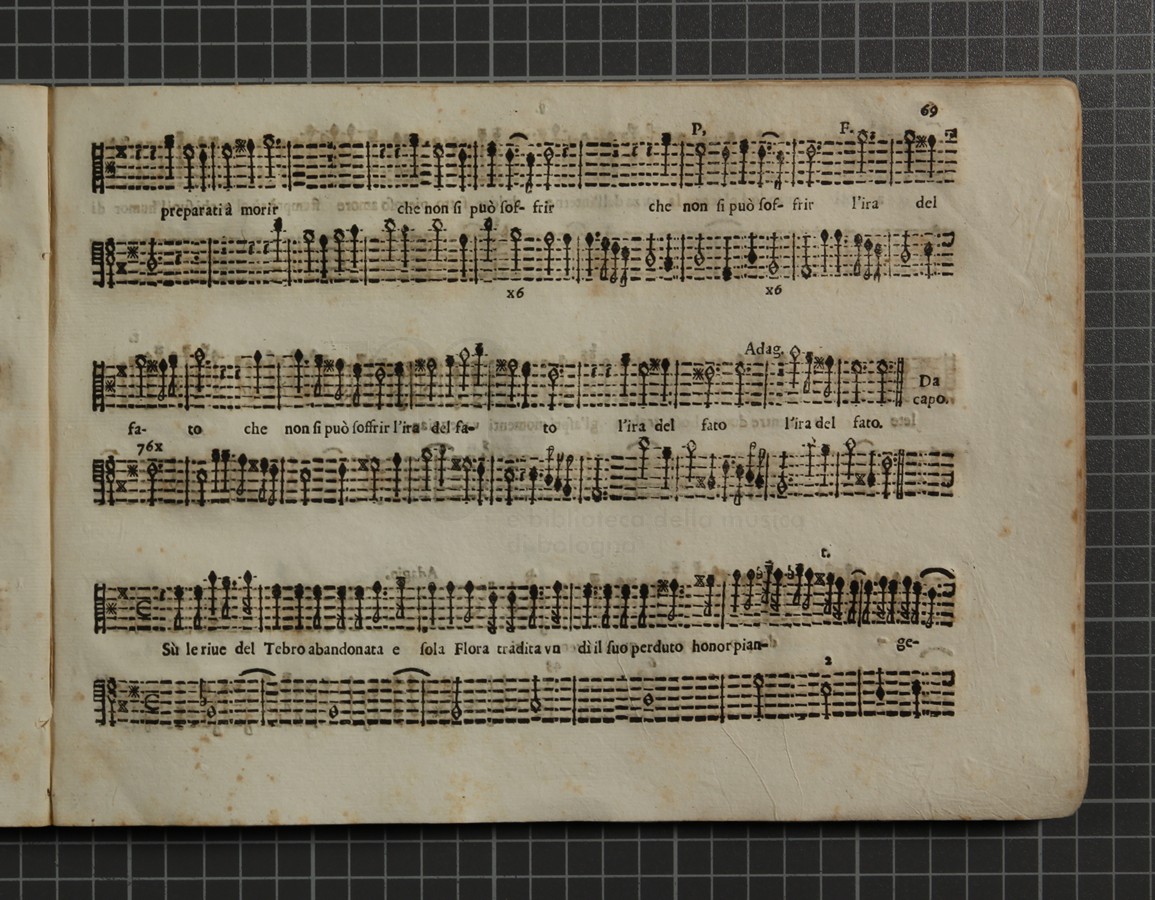 69
P, F.
preparati à morir che non si può sof- frir che non si può sof- frir l'ira del
x6 x6
Adag.
Da capo.
fa- to che non si può soffrir l'ira del fa- to l'ira del fato l'ira del fato.
76x
t.
Sù le riue del Tebro abandonata e sola Flora tradita vn dì il suo perduto honor pian- ge-
2
e biblioteca della musica
di bologna